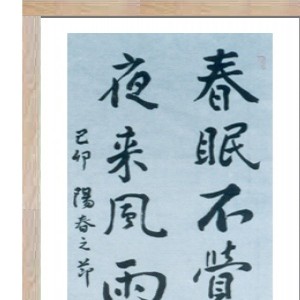 春眠不覺
夜来風雨
己卯陽春之節